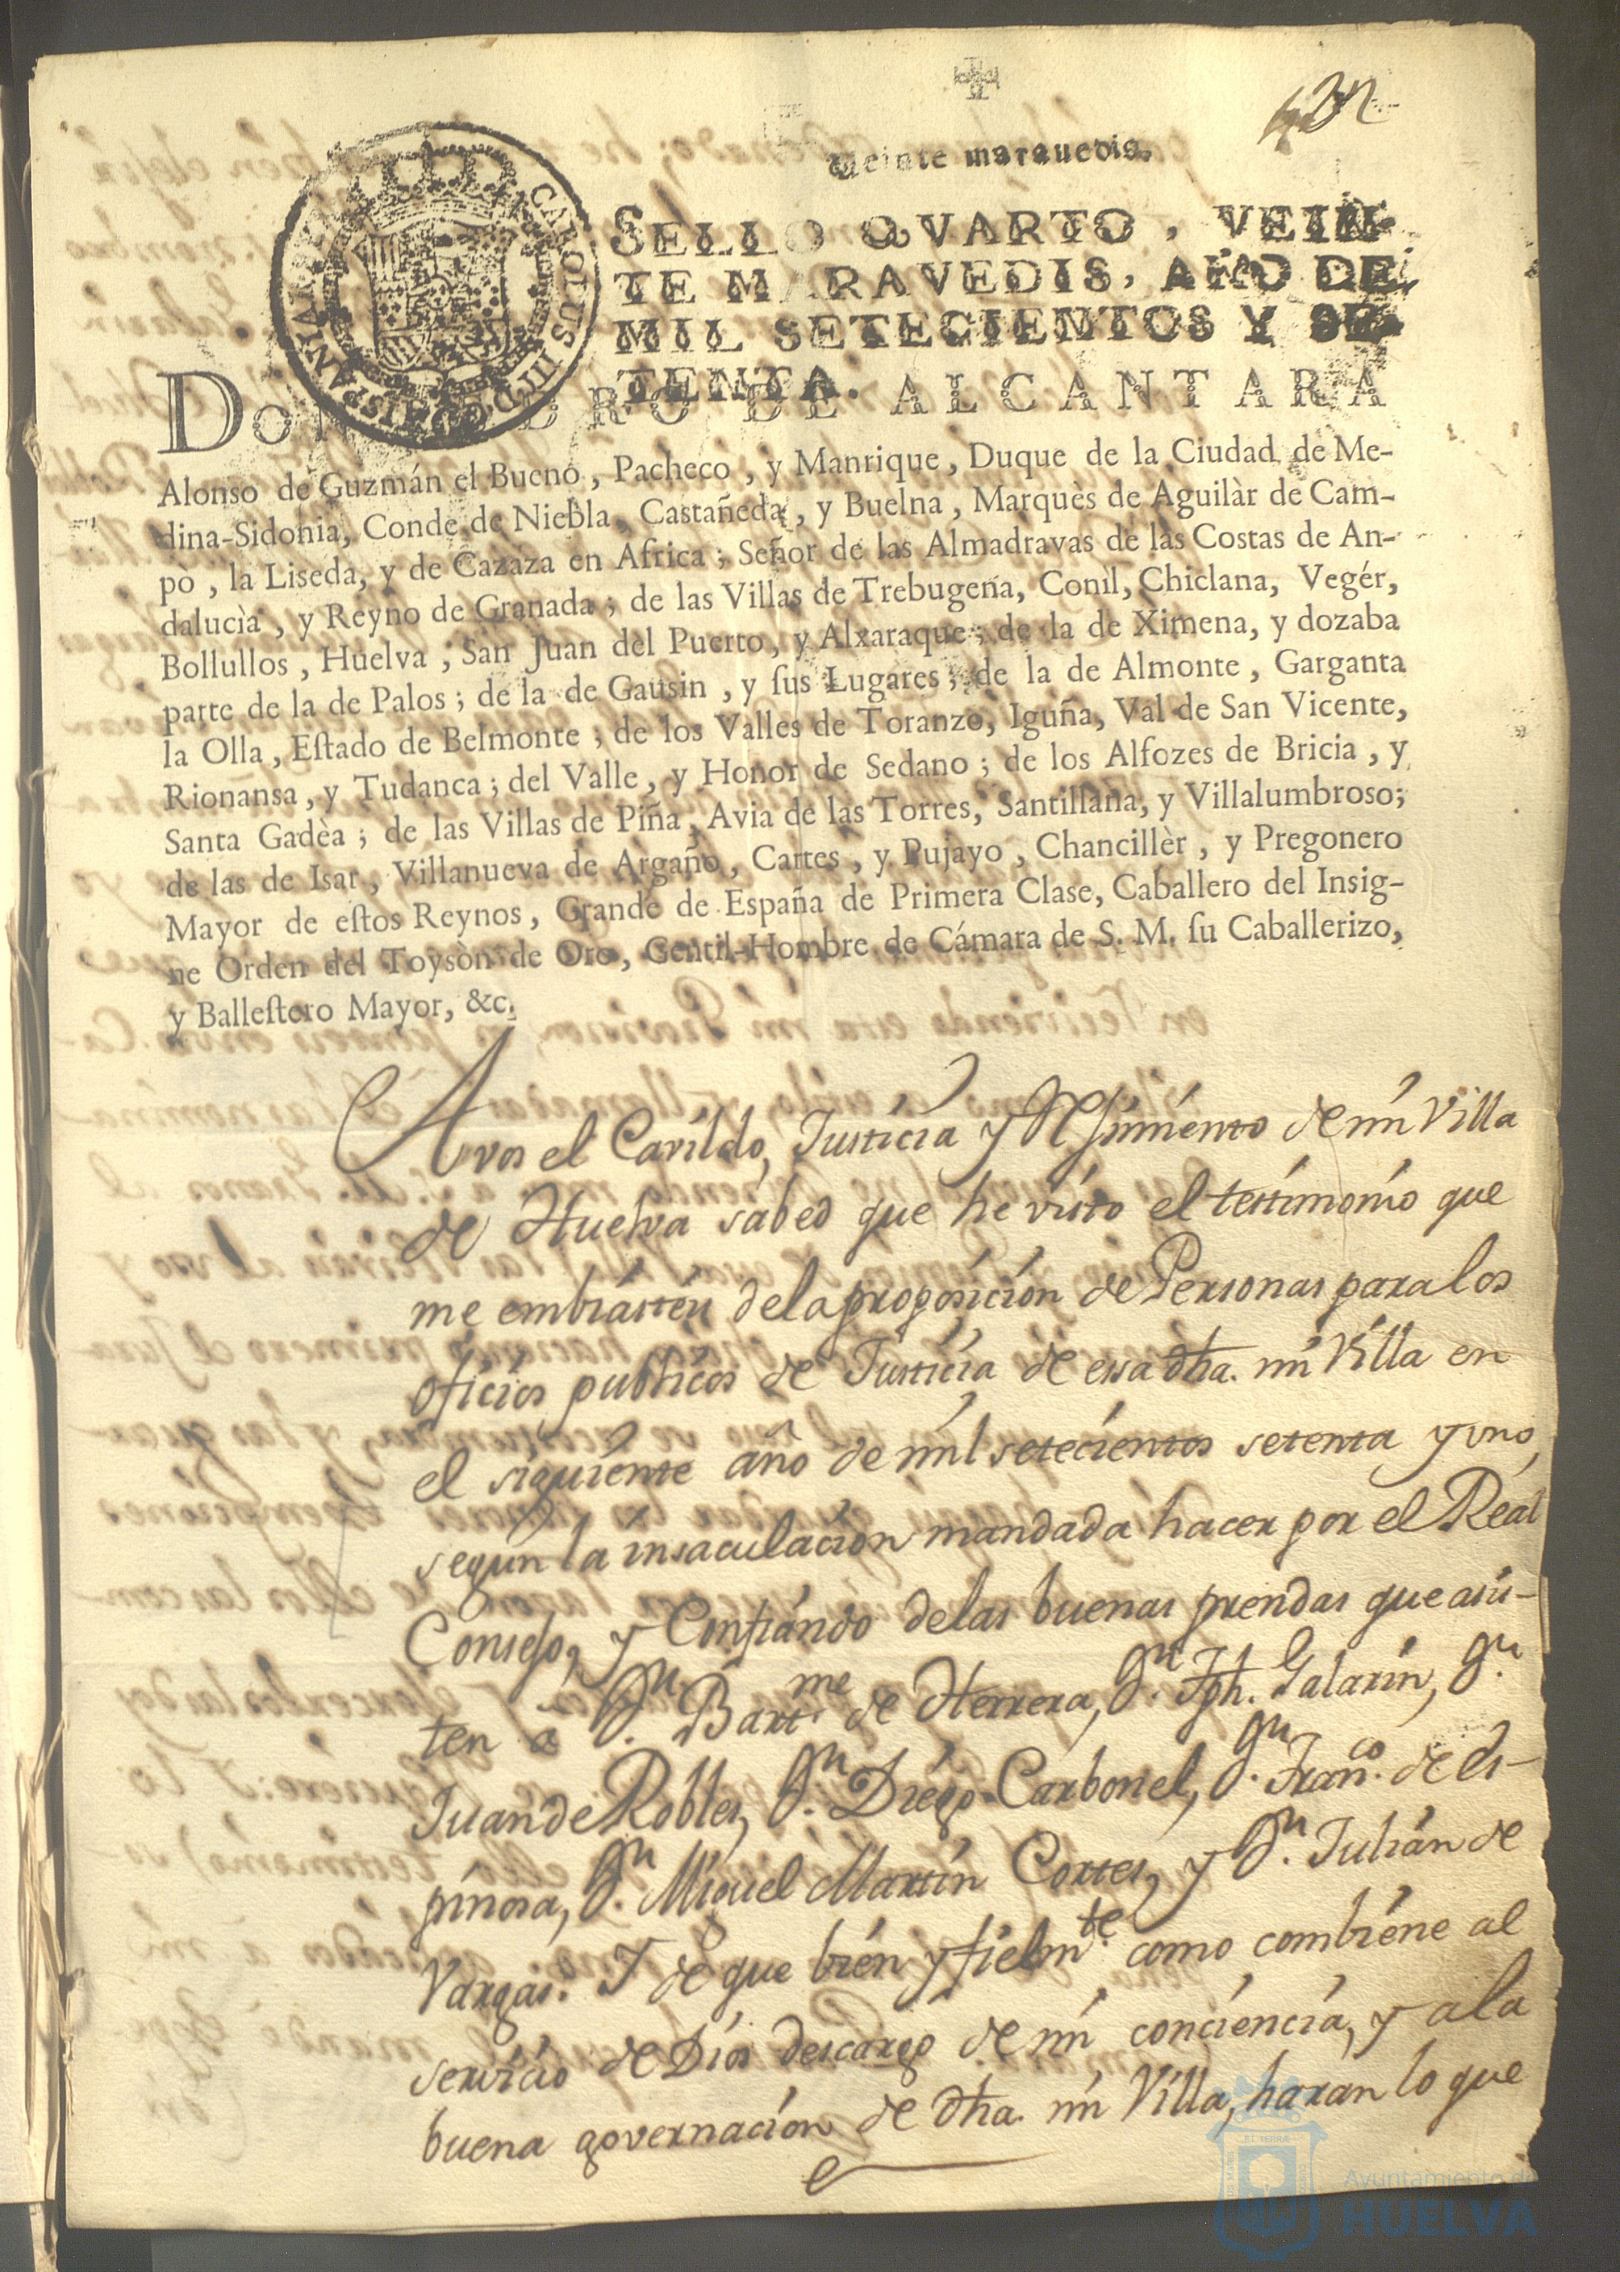 Veinte maravedis.
SELLO QVARTO, VEIN-
TE MARAVEDIS, AÑO DE
MIL SETECIENTOS Y SE-
TENTA.
CAROLUS III D. G. HISPANIAR
DON PEDRO DE ALCANTARA
Alonso de Guzmán el Bueno, Pacheco, y Manrique, Duque de la Ciudad de Me-
dina-Sidonia, Conde de Niebla, Castañeda, y Buelna, Marquès de Aguilàr de Cam-
pò, la Liseda, y de Cazaza en Africa; Señor de las Almadravas de las Costas de An-
dalucìa, y Reyno de Granada; de las Villas de Trebugena, Conìl, Chiclana, Vegér,
Bollullos, Huelva, San Juan del Puerto, y Alxaraque; de la de Ximena, y dozaba
parte de la de Palos; de la de Gausin, y ſus Lugares; de la de Almonte, Garganta
la Olla, Eſtado de Belmonte; de los Valles de Toranzo, Iguña, Val de San Vicente,
Rionansa, y Tudanca; del Valle, y Honor de Sedano; de los Alfozes de Bricia, y
Santa Gadèa; de las Villas de Piña, Avia de las Torres, Santillana, y Villalumbroso;
de las de Isar, Villanueva de Argaño, Cartes, y Pujayo, Chancillèr, y Pregonero
Mayor de eſtos Reynos, Grande de España de Primera Clase, Caballero del Insig-
ne Orden del Toysòn de Oro, Gentil-Hombre de Cámara de S. M. ſu Caballerizo,
y Balleſtero Mayor, &c.
A vos el Cavildo, Justicia y Rejimiento de mi Villa
de Huelva sabed que he visto el testimonio que
me embiasteis de la proposicion de Personas para los
oficios publicos de Justicia de essa dha. mi Villa en
el siguiente año de mil setecientos setenta y uno,
segun la insaculacion mandada hacer por el Real
Consejo, y Confiando de las buenas prendas que asis-
ten à Dn. Bartme. de Herrera, Dn. Jph. Galarin, Dn.
Juan de Robles, Dn. Diego Carbonel, Dn. Franco. de Es-
pinosa, Dn. Miguel Martin Cortes, y Dn. Julian de
Vargas. Y de que bien y fielmte. como combiene al
servicio de Dios descargo de mi conciencia, y a la
buena governacion de dha. mi Villa, haran lo que
Ayuntamiento de
HUELVA